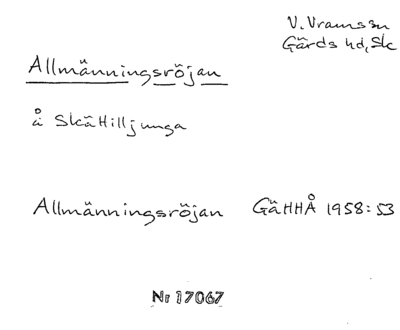 V. Vramssn
Gärds hd, Sk
Allmänningsröjan
å Skättilljunga
Allmänningsröjan GäHHÅ 1958:53
Nr 17067